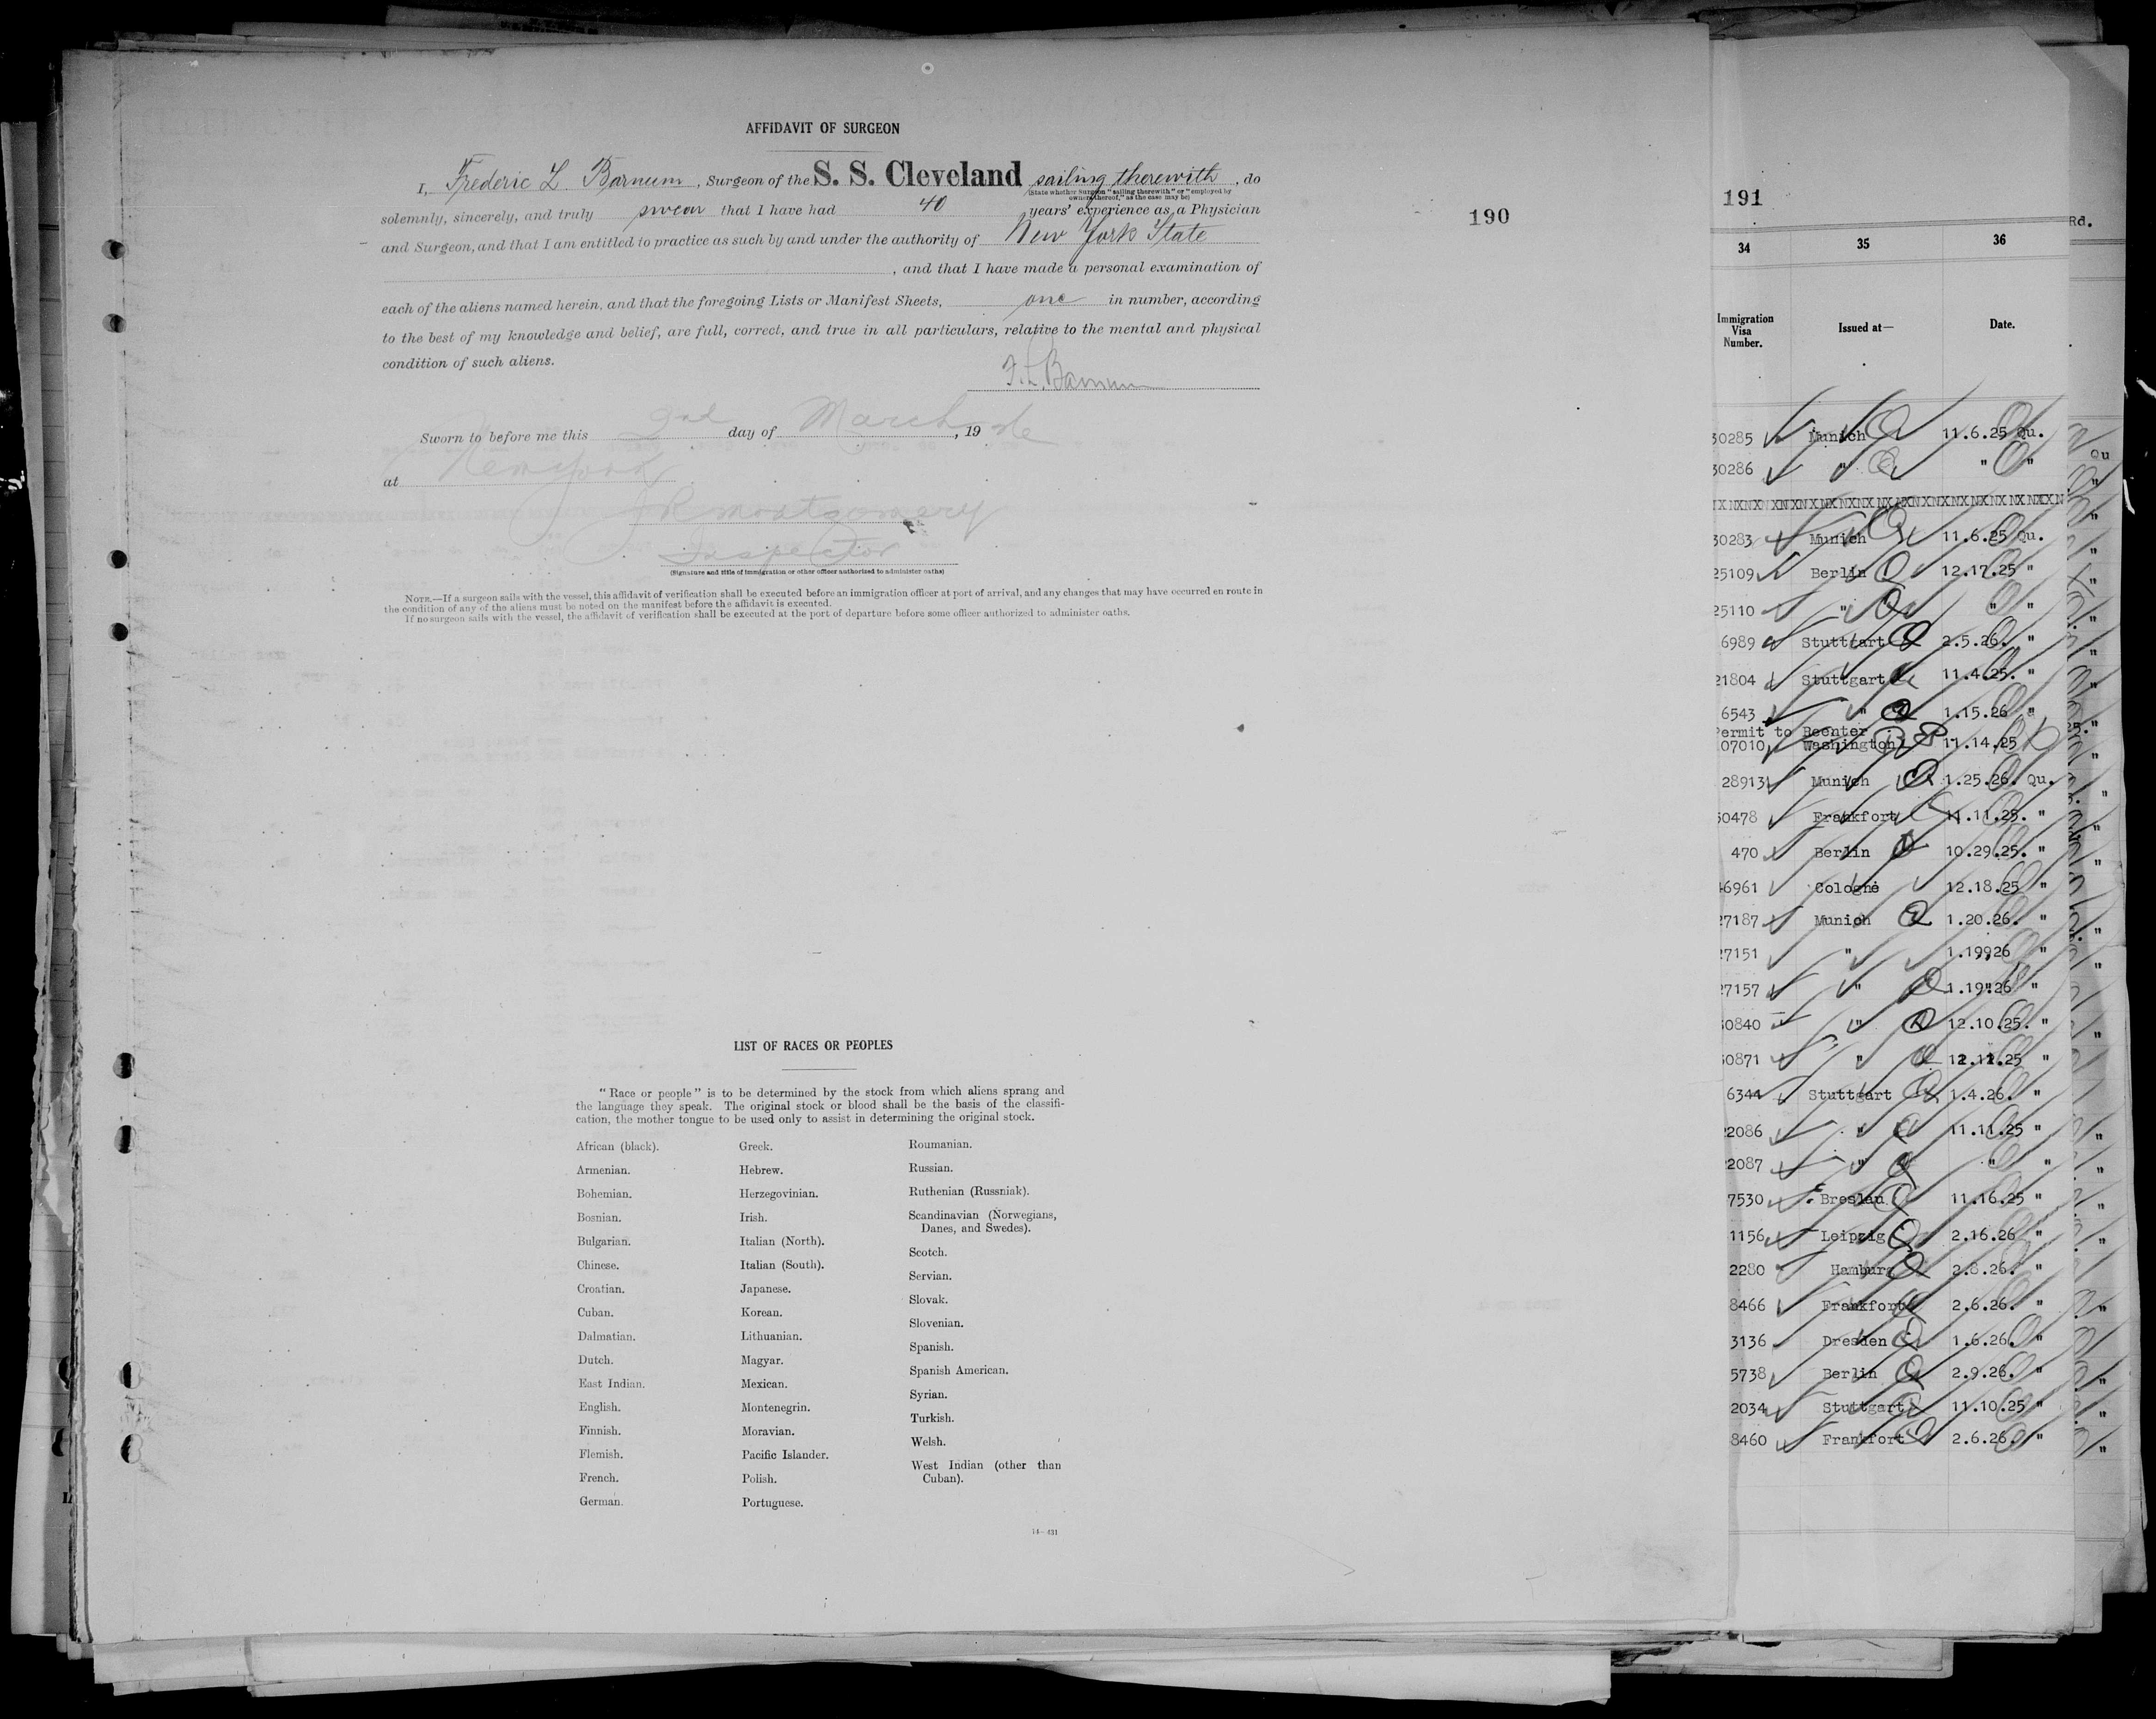 AFFIDAVIT OF SURGEON
I, Frederic L. Barnum, Surgeon of the S. S. Cleveland sailing therewith, do
(State whether Surgeon "sailing therewith" or "employed by
owners thereof," as the case may be)
solemnly, sincerely, and truly swear that I have had 40 years' experience as a Physician
and Surgeon, and that I am entitled to practice as such by and under the authority of New York State
, and that I have made a personal examination of
each of the aliens named herein, and that the foregoing Lists or Manifest Sheets, one in number, according
to the best of my knowledge and belief, are full, correct, and true in all particulars, relative to the mental and physical
condition of such aliens.
F. L. Barnum
Sworn to before me this 2nd day of March, 19
at New York
Montgomery
Inspector
(Signature and title of immigration or other officer authorized to administer oaths)
NOTE.—If a surgeon sails with the vessel, this affidavit of verification shall be executed before an immigration officer at port of arrival, and any changes that may have occurred en route in
the condition of any of the aliens must be noted on the manifest before the affidavit is executed.
If no surgeon sails with the vessel, the affidavit of verification shall be executed at the port of departure before some officer authorized to administer oaths.
190
LIST OF RACES OR PEOPLES
"Race or people" is to be determined by the stock from which aliens sprang and
the language they speak. The original stock or blood shall be the basis of the classifi-
cation, the mother tongue to be used only to assist in determining the original stock.
African (black).
Armenian.
Bohemian.
Bosnian.
Bulgarian.
Chinese.
Croatian.
Cuban.
Dalmatian.
Dutch.
East Indian.
English.
Finnish.
Flemish.
French.
German.
Greek.
Hebrew.
Herzegovinian.
Irish.
Italian (North).
Italian (South).
Japanese.
Korean.
Lithuanian.
Magyar.
Mexican.
Montenegrin.
Moravian.
Pacific Islander.
Polish.
Portuguese.
Roumanian.
Russian.
Ruthenian (Russniak).
Scandinavian (Norwegians,
Danes, and Swedes).
Scotch.
Servian.
Slovak.
Slovenian.
Spanish.
Spanish American.
Syrian.
Turkish.
Welsh.
West Indian (other than
Cuban).
14—431
191
Rd.
34 35 36
Immigration
Visa
Number.
Issued at—
Date.
30285 Munich 11.6.25 Qu.
30286 " " "
30283 Munich 11.6.25 Qu.
25109 Berlin 12.17.25 "
25110 " " "
6989 Stuttgart 2.5.26. "
21804 Stuttgart 11.4.25. "
6543 " 1.15.26 "
Permit to Reenter
07010 Washington 11.14.25
28913 Munich 1.25.26. Qu.
50478 Frankfort 11.11.25. "
470 Berlin 10.29.25. "
46961 Cologne 12.18.25 "
27187 Munich 1.20.26. "
27151 " 1.19926 "
27157 " 1.19.26 "
30840 " 12.10.25. "
30871 " 12.12.25 "
6344 Stuttgart 1.4.26. "
22086 " 11.11.25 "
22087 " " "
7530 Breslau 11.16.25 "
1156 Leipzig 2.16.26 "
2280 Hamburg 2.8.26. "
8466 Frankfort 2.6.26. "
3136 Dresden 1.6.26. "
5738 Berlin 2.9.26. "
2034 Stuttgart 11.10.25 "
8460 Frankfort 2.6.26. "